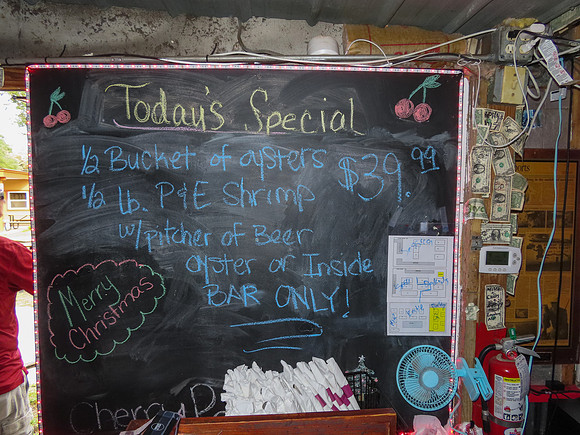 Today's Special
1/2 Bucket of oysters $39.99
1/2 lb. P&E Shrimp
w/pitcher of Beer
oyster or Inside
BAR ONLY!
Merry
Christmas
Cherry